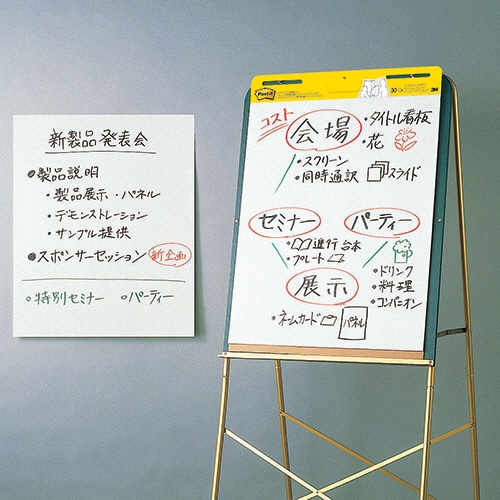 新製品発表会
●製品説明
・製品展示・パネル
・デモンストレーション
・サンプル提供
●スポンサーセッション 新企画
○特別セミナー ○パーティー
Post-it
3M
コスト
会場
・タイトル看板
・花
・スクリーン
・同時通訳
スライド
セミナー
パーティー
・進行台本
・プレート
展示
・ドリンク
・料理
・コンパニオン
・ネームカード
パネル